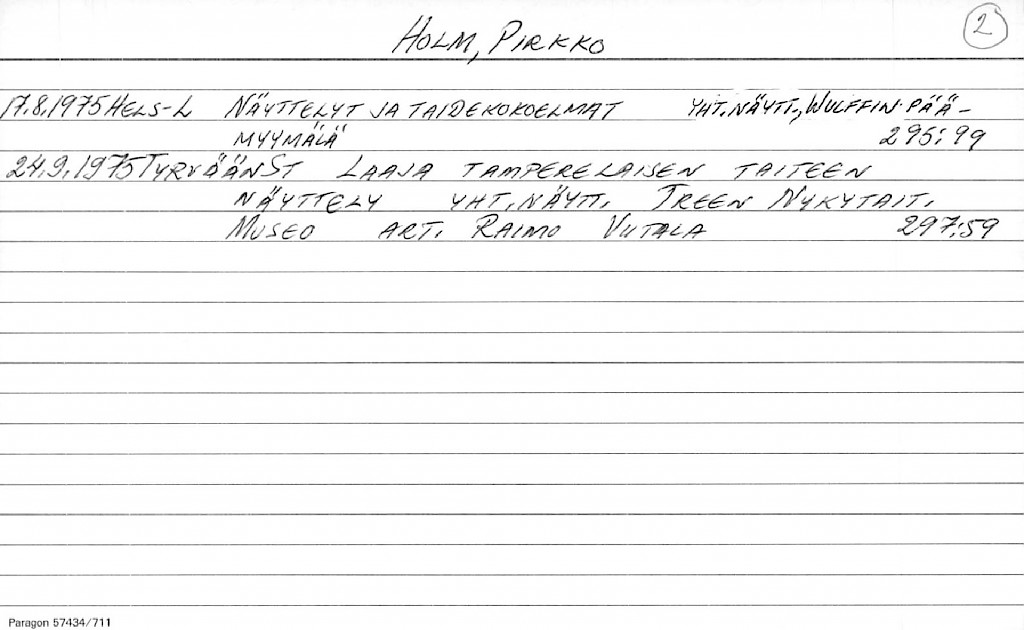 HOLM, PIRKKO
2
17.8.1975 HELS-L NÄYTTELYT JA TAIDEKOKOELMAT YHT.NÄYTT., WULFFIN PÄÄ-
MYYMÄLÄ 295:99
24.9.1975 TYRVÄÄNST LAAJA TAMPERELAISEN TAITEEN
NÄYTTELY YHT.NÄYTT. TREEN NYKYTAIT.
MUSEO ART. RAIMO VIITALA 297:59
Paragon 57434/711